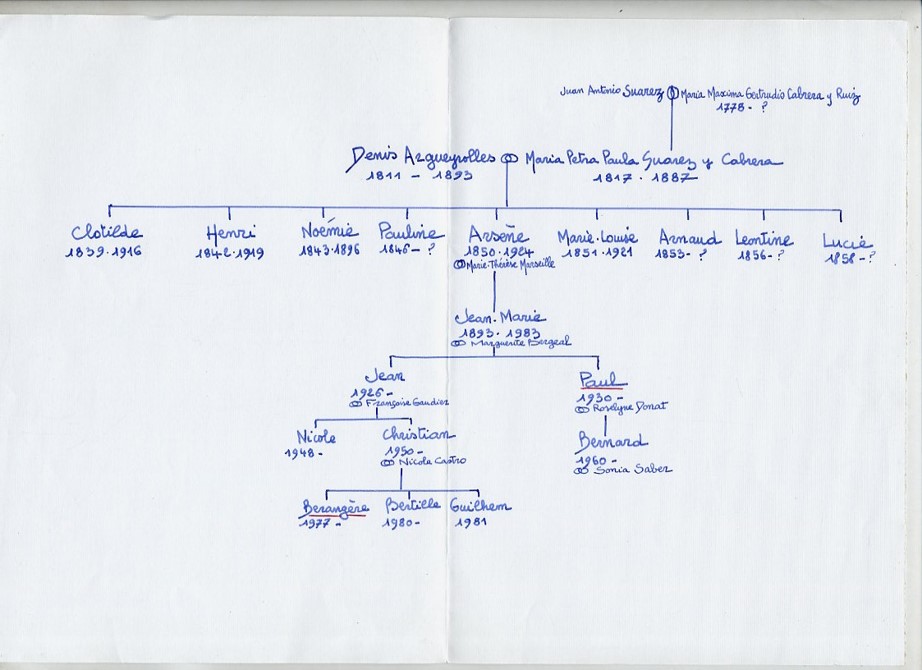 Juan Antonio Suarez ⚭ Maria Maxima Gertrudis Cabrera y Ruiz
1778 - ?
Denis Azgueyrolles ⚭ Maria Petra Paula Suarez y Cabrera
1811 - 1893
1817 - 1887
Clotilde Henri Noémie Pauline Arsène Marie-Louise Arnaud Leontine Lucie
1839-1916 1842-1919 1843-1896 1846 - ? 1850-1924 1851-1921 1853- ? 1856- ? 1858 - ?
⚭ Marie-Thérèse Marseille
Jean-Marie
1893 - 1983
⚭ Marguerite Bergeal
Jean Paul
1926 - 1930 -
⚭ Françoise Gaudiez ⚭ Roselyne Donat
Nicole Christian Bernard
1948 - 1950 - 1960 -
⚭ Nicole Castro ⚭ Sonia Saber
Berangère Bertille Guilhem
1977 - 1980 - 1981